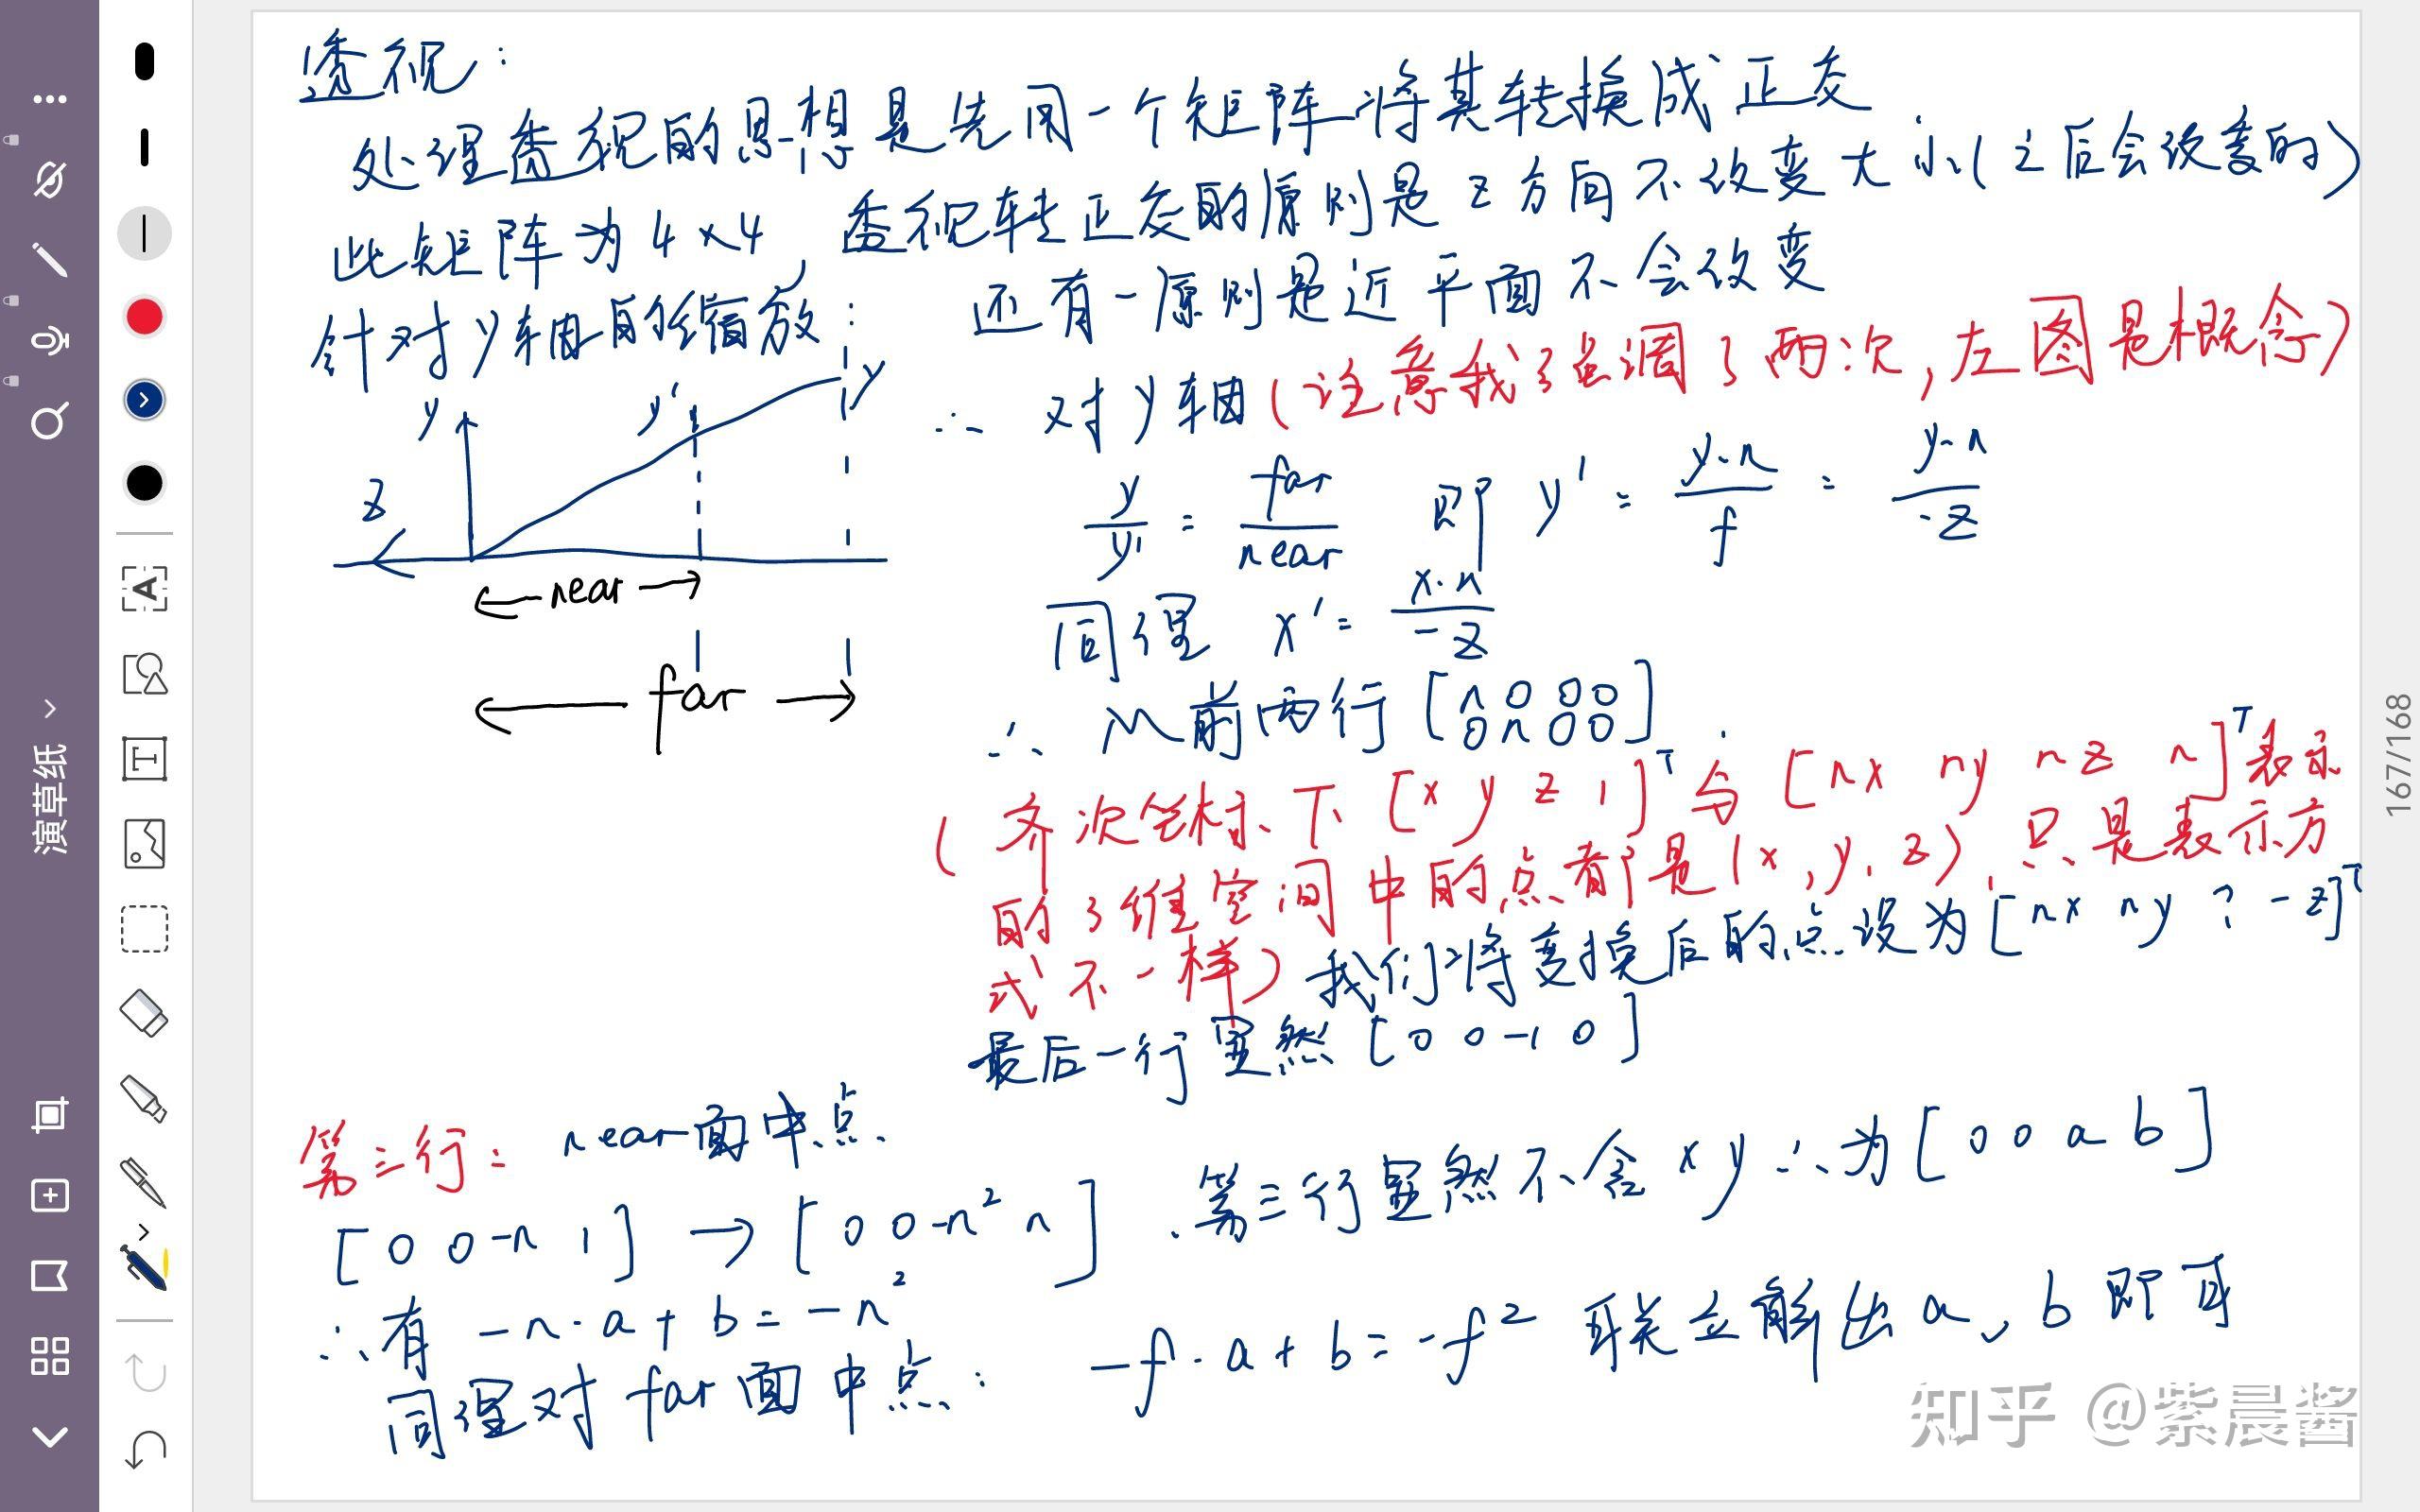 透视：
处理透视的思想是先用一个矩阵将其转换成正交
此矩阵为4×4 透视转正交的原则是z方向不改变大小(之后会改变的)
还有一原则是近平面不会改变
针对y轴的缩放：
y y' y
z
near
far
∴ 对y轴(注意我强调了两次，左图是概念)
y/y' = far/near 即 y' = y·n/f = y·n/-z
同理 x' = x·n/-z
∴ M前两行 [n 0 0 0
0 n 0 0]
(齐次坐标下 [x y z 1]ᵀ与[nx ny nz n]ᵀ表示
的3维空间中的点都是(x,y,z)，只是表示方
式不一样) 我们将变换后的点设为[nx ny ? -z]ᵀ
最后一行显然 [0 0 -1 0]
第三行： near面中点
[0 0 -n 1] → [0 0 -n² n] .第三行显然不含xy∴为[0 0 a b]
∴有 -n·a+b=-n²
同理对far面中点： -f·a+b=-f² 联立解出a、b即可
知乎 @紫晨酱
演草纸
167/168